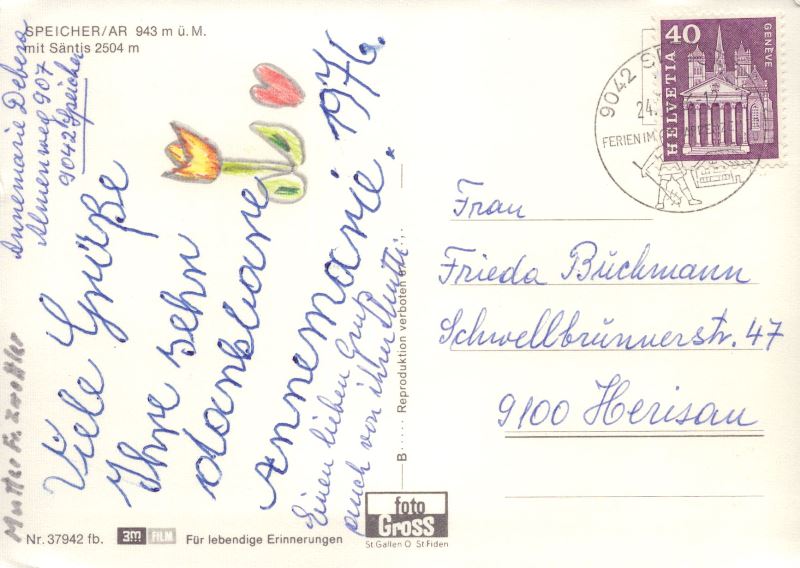 SPEICHER/AR 943 m ü. M.
mit Säntis 2504 m
Annemarie Debera
Almenweg 907
9042 Speicher
Viele Grüße
Ihre sehn
dankbare
Annemarie. 1976.
Einen lieben Gruß
auch von ihrer Mutti
Mutter Fr.
B
Reproduktion verboten
Nr. 37942 fb.
3M FILM
Für lebendige Erinnerungen
foto
Gross
St Gallen O St Fiden
40
HELVETIA
GENÈVE
9042
24.
FERIEN IM
Frau
Frieda Buchmann
Schwellbrunnerstr. 47
9100 Herisau